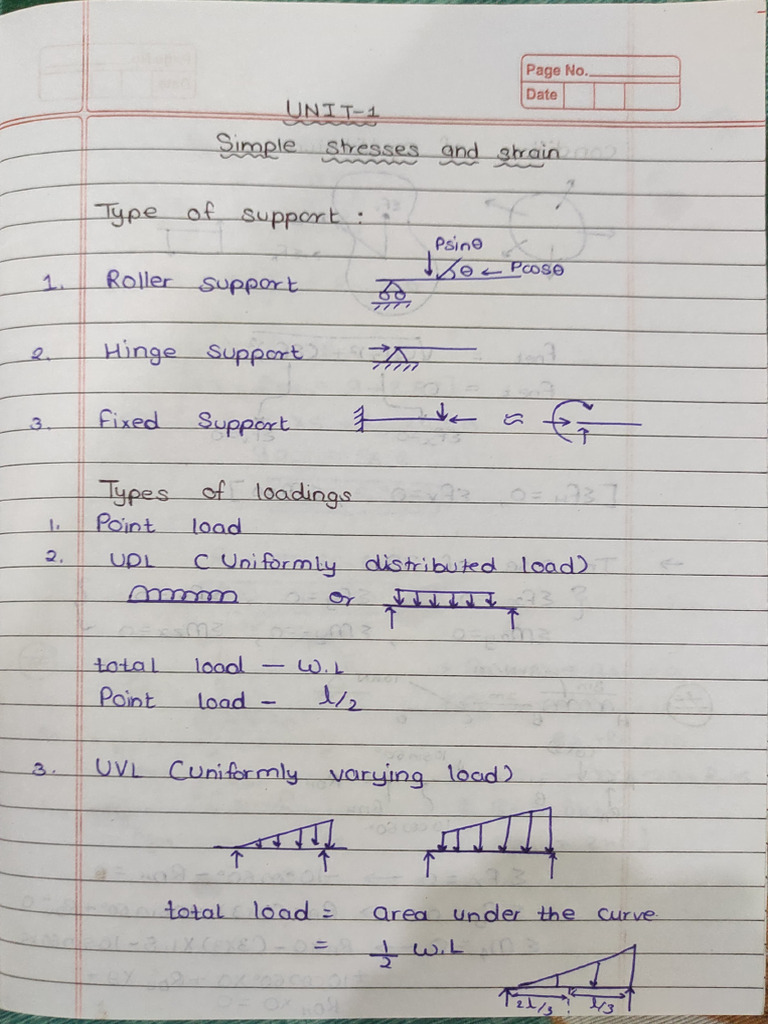 Page No.
Date
UNIT-1
Simple stresses and strain
Type of support :
Psinθ
1. Roller support θ ← Pcosθ
2. Hinge support
3. Fixed Support ≈
Types of loadings
1. Point load
2. UDL (Uniformly distributed load)
or
total load — W.L
Point load - l/2
3. UVL (Uniformly varying load)
total load = area under the curve
= 1/2 W.L
2l/3 l/3